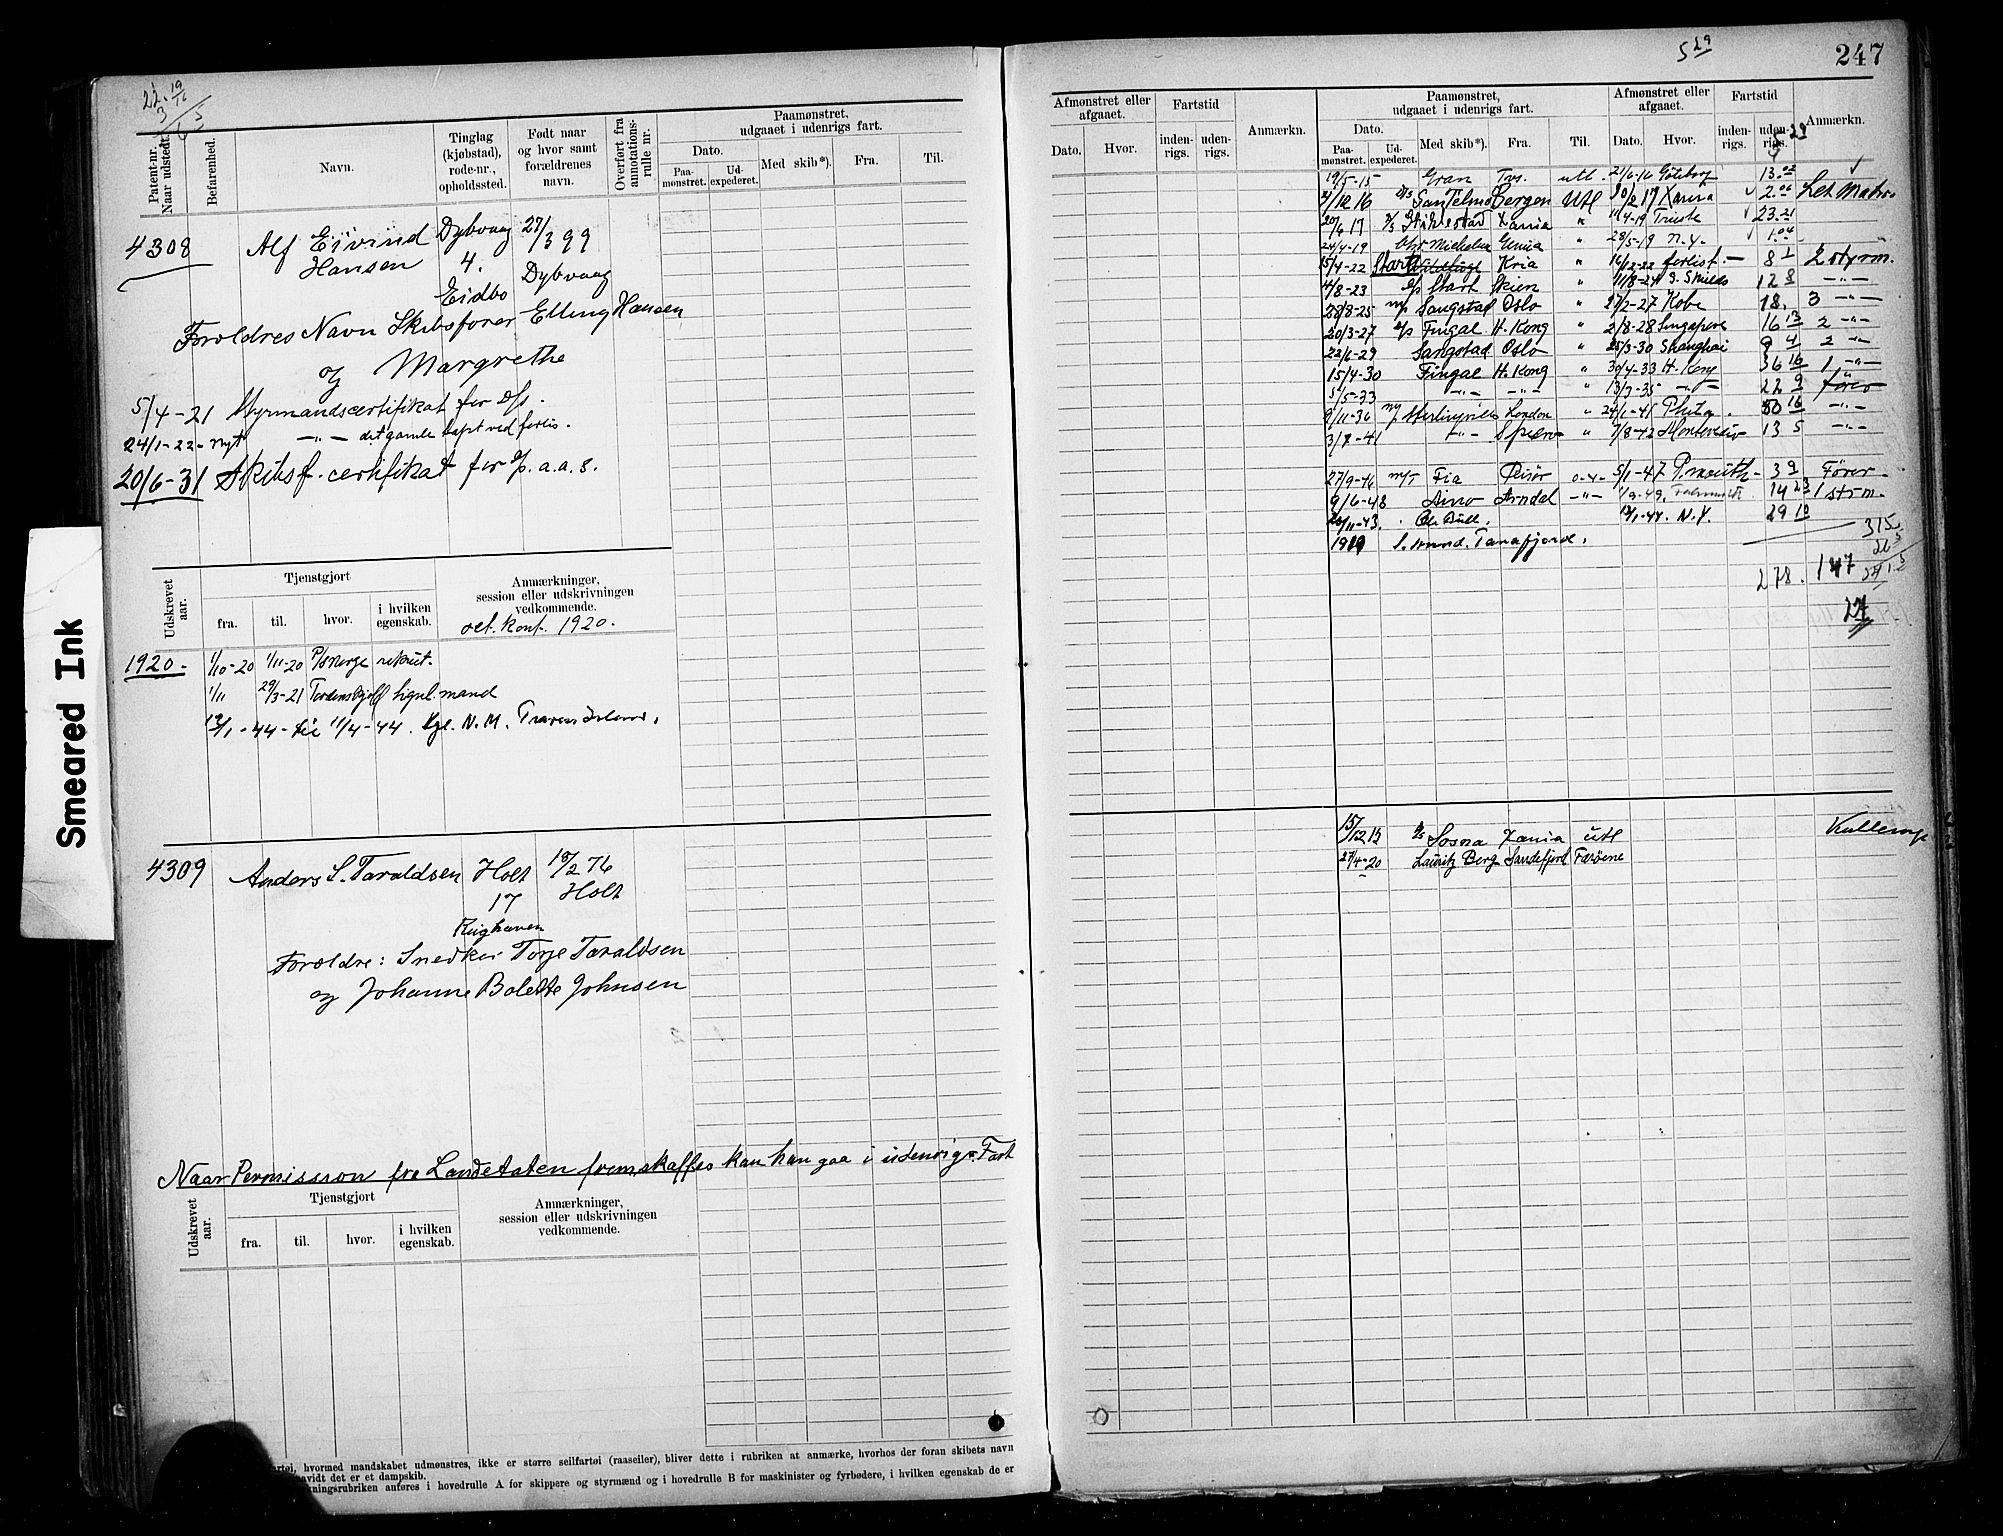 Smeared Ink
22. 19/16
3
Patent-nr. Naar udstedt.
Befarenhed.
Navn.
Tinglag (kjøbstad), rode-nr., opholdssted.
Født naar og hvor samt forældrenes navn.
Overført fra annotationsrulle nr.
Paamønstret, udgaaet i udenrigs fart.
Dato.
Paamønstret.
Udexpederet.
Med skib*).
Fra.
Til.
4308
Alf Eivind Hansen
Dybvaag
4.
Eidbo
27/3 99
Dybvaag
Foroldres Navn Skibsfører Elling Hansen
og Margrethe
5/4-21 Styrmandscertifikat for D/s.
24/1-22- nyt -"- det gamle tapt ved forlis.
20/6-31 Skibsf. certifikat for D/s. a.a.s.
Udskrevet aar.
Tjenstgjort
fra. til. hvor. i hvilken egenskab.
Anmærkninger, session eller udskrivningen vedkommende.
1920.
1920.- 1/10-20 1/11-20 P/s Norge rekrut.
1/11 29/3-21 Tordenskjold signl. mand
12/1-44- til 11/4-44. Kgl. N.M. Travers Island.
4309
Anders S. Taraldsen
Holt
17
Ringhaven
18/2 76
Holt
Foroldre: Snedker Torje Taraldsen
og Johanne Bolette Johnsen
Naar Permission fra Landetaten fremskaffes kan han gaa i udenrigs Fart
Udskrevet aar.
Tjenstgjort
fra. til. hvor. i hvilken egenskab.
Anmærkninger, session eller udskrivningen vedkommende.
artøi, hvormed mandskabet udmønstres, ikke er større seilfartøi (raaseiler), bliver dette i rubriken at anmærke, hvorhos der foran skibets navn
avidt det er et dampskib.
kningsrubriken anføres i hovedrulle A for skippere og styrmænd og i hovedrulle B for maskinister og fyrbødere, i hvilken egenskab de er
5 29
247
Afmønstret eller afgaaet.
Dato. Hvor.
Fartstid
indenrigs. udenrigs.
Anmærkn.
Paamønstret, udgaaet i udenrigs fart.
Dato.
Paamønstret. Udexpederet.
Med skib*). Fra. Til.
Afmønstret eller afgaaet.
Dato. Hvor.
Fartstid
indenrigs. udenrigs.
Anmærkn.
5 29
19/5-15 Gran Tvs. utl. 21/6-16 Göteborg 13.02
2/12 16 D/s San Telmo Bergen Utl 10/2 17 Xania 2.06 Let Matros
20/6 17 D/s Stiklestad Xania " 11/4-19 Trieste 23.21
24/4-19 Chr Michelsen Genua " 28/5-19 N.Y. 1.04
15/4-22 Start Kria " 16/12-22 forlist - 8 1 2 styrm.
4/8-23 D/s Start Skien " 11/8-24 S. Skields 12 8 -"-
28/8-25 M/s Sangstad Oslo " 27/2-27 Kobe 18. 3 -"-
20/3-27 D/s Fingal H. Kong " 2/8-28 Singapore 16 13 2 -"-
22/6-29 Sangstad Oslo " 25/3-30 Shanghai 9 4 2 -"-
15/4-30 Fingal H. Kong " 30/4-33 H. Kong 36 16 1 -"-
5/5-33 -"- -"- " 13/3-35 -"- 22 9 fører
9/11-36 M/s London " 24/1-41 Phila. 50 16 -"-
3/7-41 -"- " 7/8-42 Montevideo 13 5 -"-
27/9-46 M/T Fia Risör 5/1-47 P.mouth - 3 9 Fører
9/6-48 Arno Arndal -"- 1/9-49. 14 23 1 strm.
20/11-43. Ole Bull. 12/1-44. N.Y. 29 10
1919 Tanafjord.
315
26 5
278. 147
27
15/12 13 D/s Sosna Xania utl Kullemp
27/4-20 Lauritz Berg Sandefjord Færöene